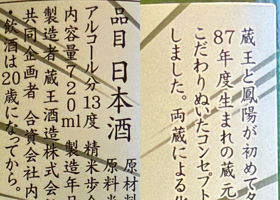 品目 日本酒
原材料
原料
アルコール分13度 精米歩
内容量720ml 製造年
製造者 蔵王酒造株式会
共同企画者 合資会社内
・飲酒は20歳になってから。
蔵王と鳳陽が初めてタ
87年度生まれの蔵元
こだわりぬいたコンセプト
しました。両蔵による